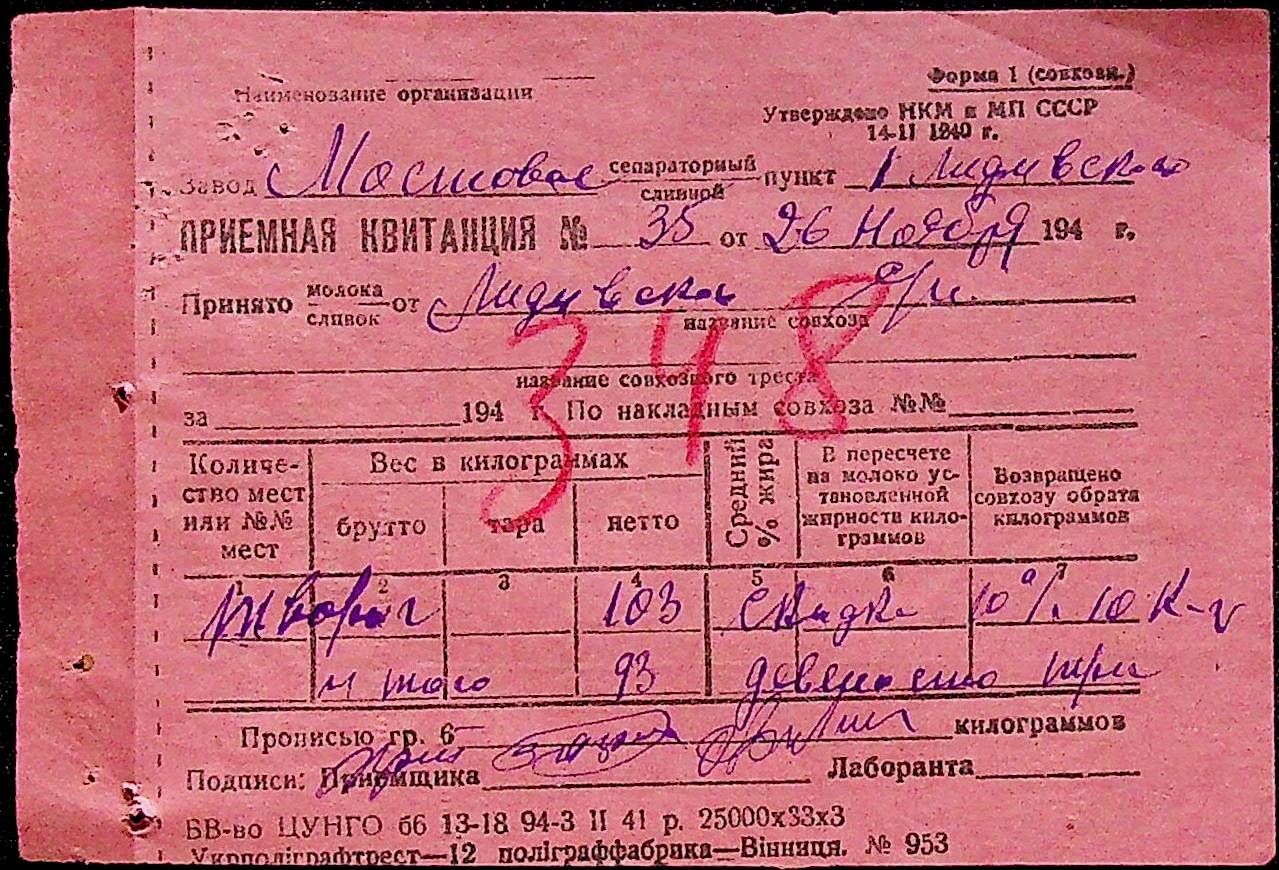 Форма 1 (совхозн.)
Наименование организации
Утверждено НКМ и МП СССР
14-II 1940 г.
Завод Мостовое сепараторный сливной пункт 1
ПРИЕМНАЯ КВИТАНЦИЯ № 35 от 26 Ноября 194 г.
Принято молока сливок от с/и.
название совхоза
348
название совхозного треста
за 194 г. По накладным совхоза №№
Количество мест или №№ мест
Вес в килограммах
брутто тара нетто
Средний % жира
В пересчете на молоко установленной жирности килограммов
Возвращено совхозу обрата килограммов
1 2 3 4 5 6 7
творог 103 скидка 10% 10 к-г
итого 93 девяносто три
Прописью гр. 6 килограммов
Подписи: Приемщика Лаборанта
БВ-во ЦУНГО бб 13-18 94-3 II 41 р. 25000х33х3
Укрполіграфтрест—12 поліграффабрика—Вінниця. № 953